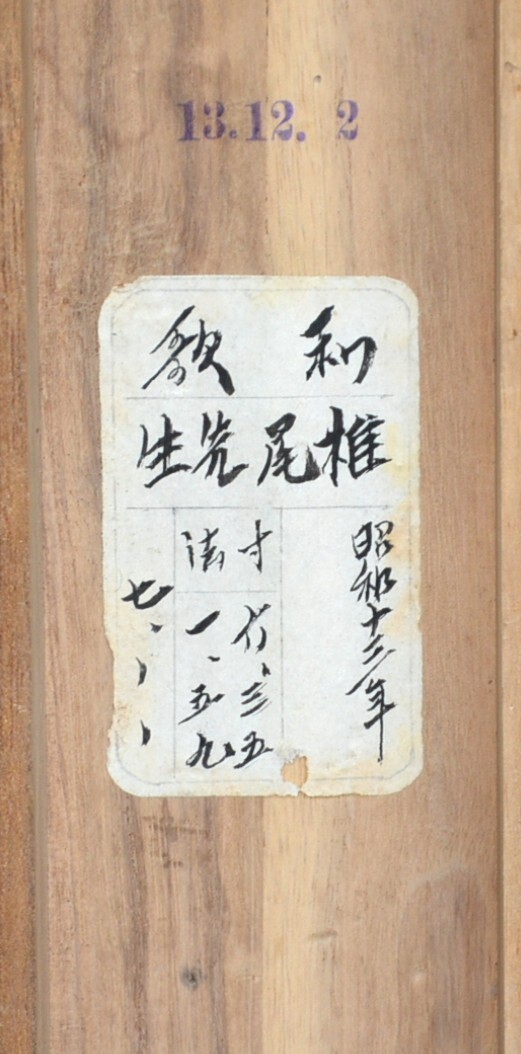 13.12.2
和歌
椎尾先生
昭和十三年
寸法
、三五
一、五九
七、、、